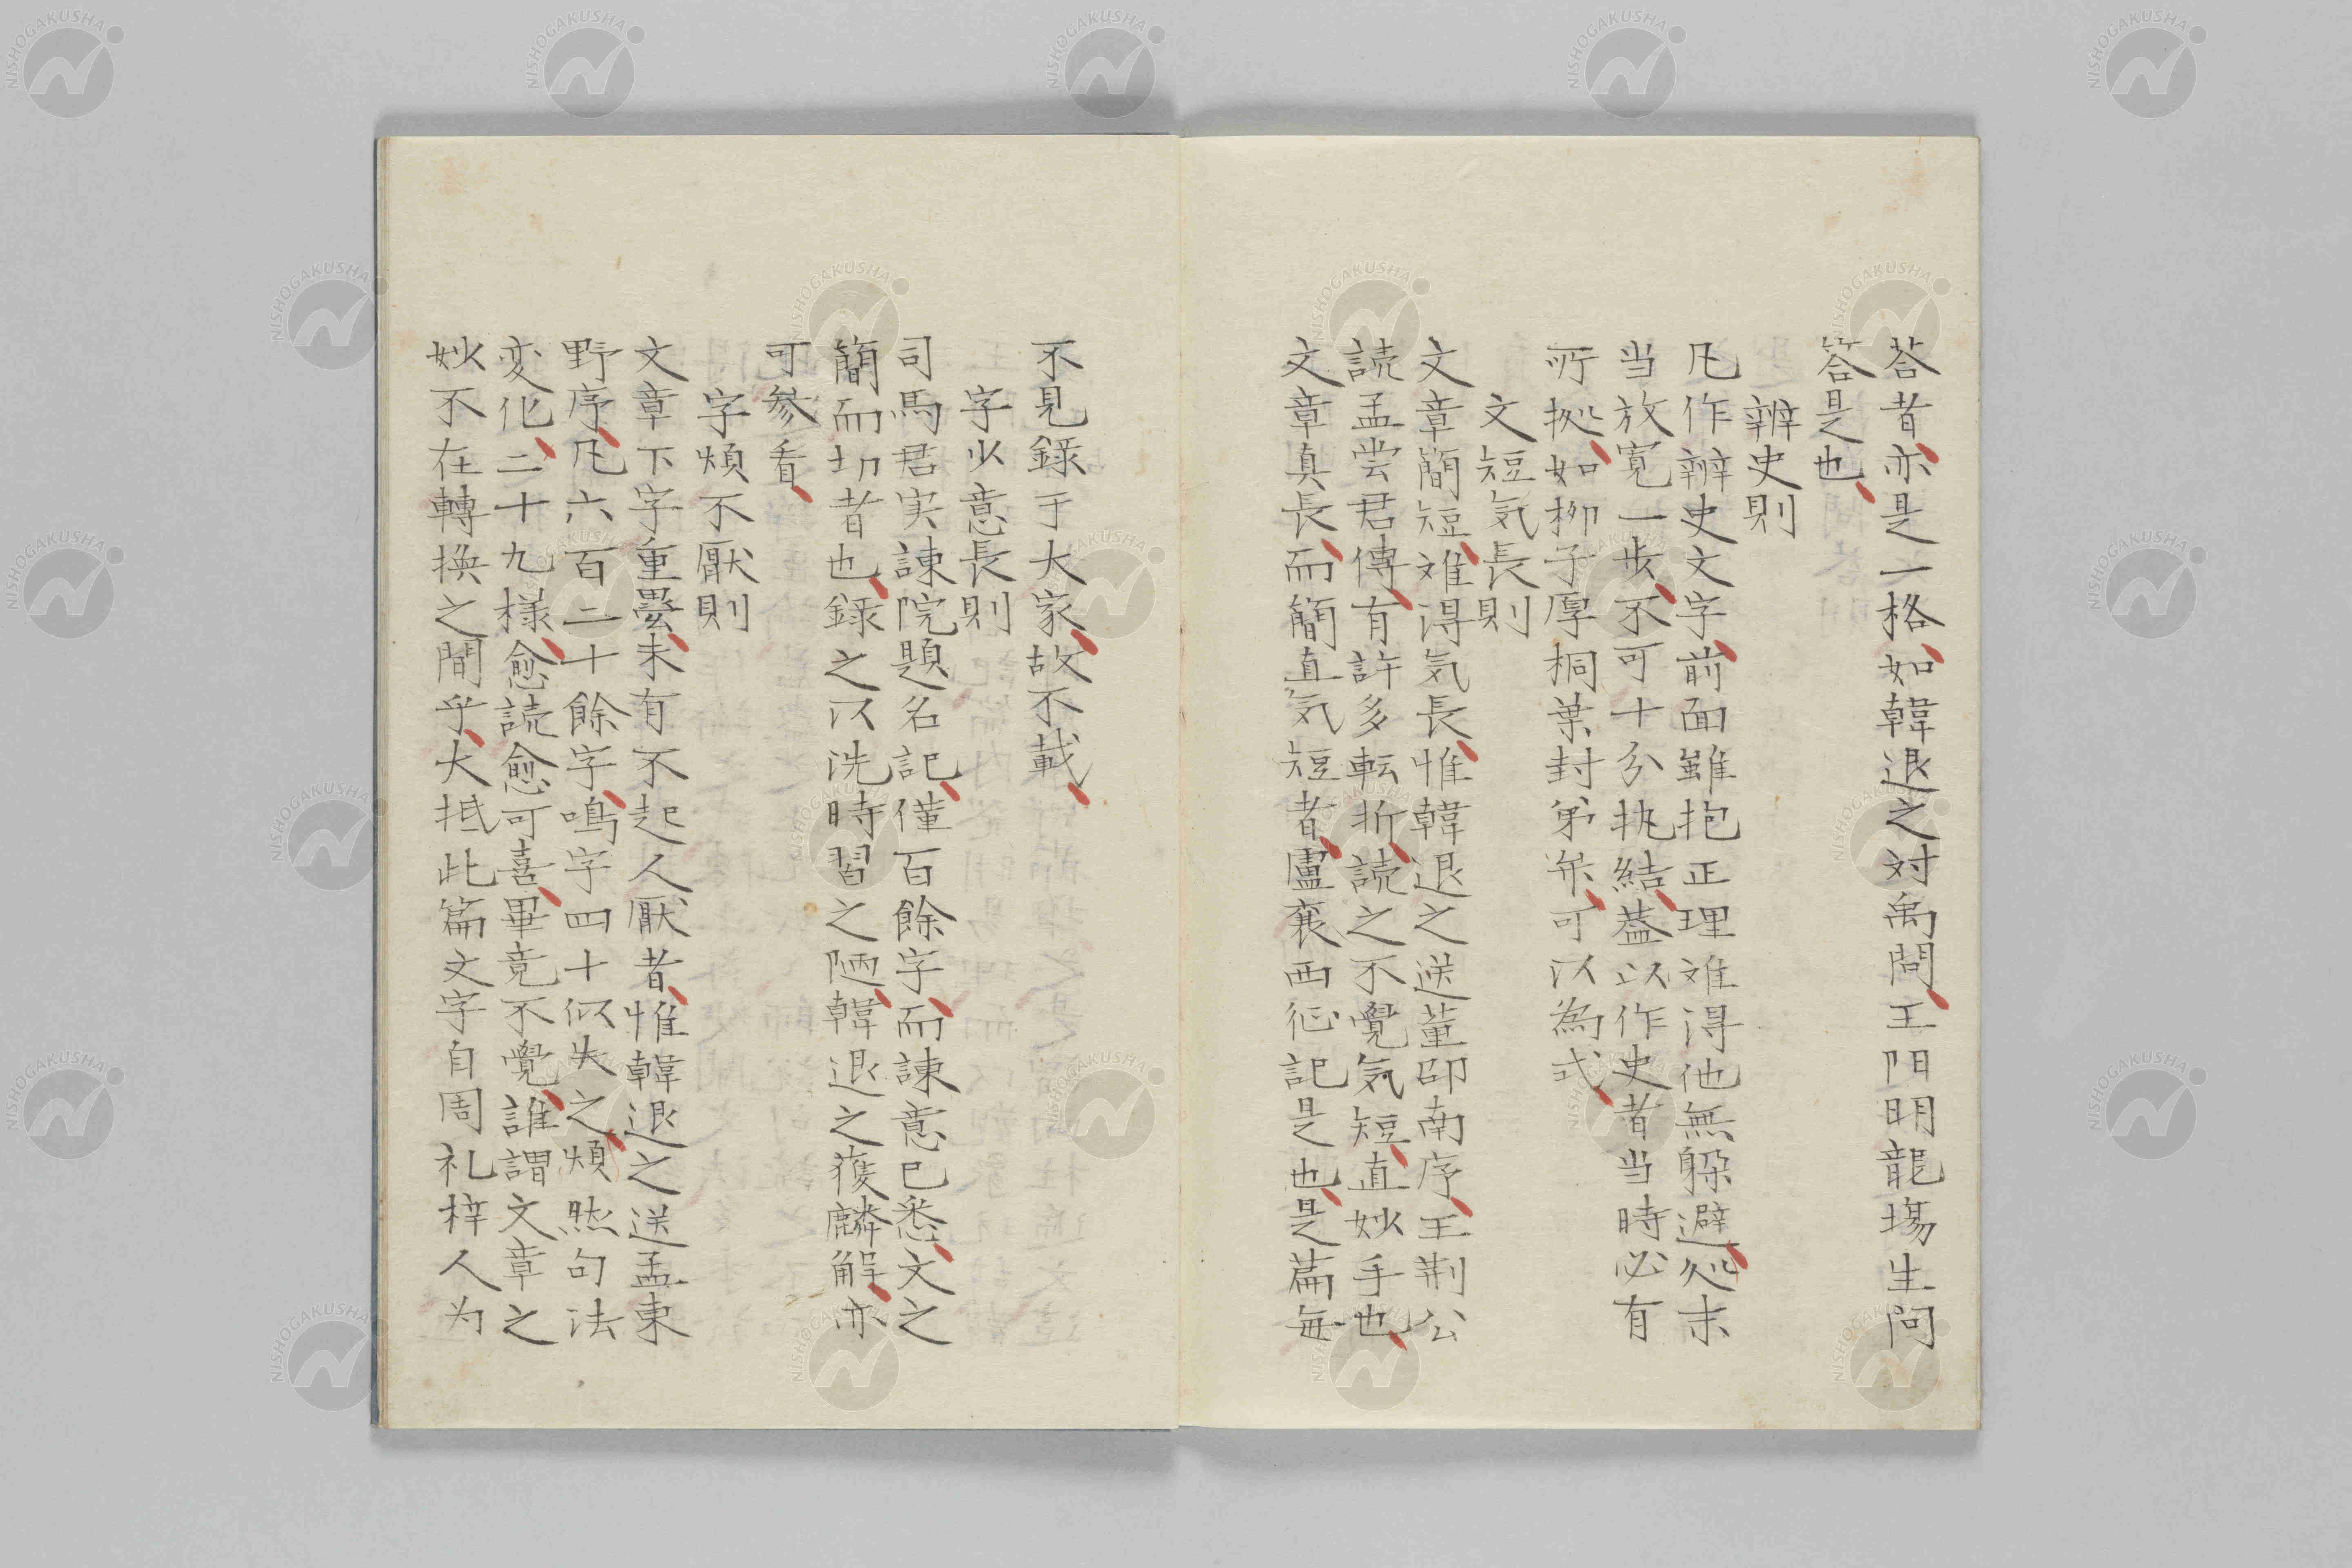 荅者亦是一格如韓退之対禹問王阳明龍場生問
答是也
辨史則
凡作辨史文字前面雖抱正理难得他無躲避処末
当放寛一步不可十分执結葢以作史者当時必有
所拠如柳子厚桐葉封弟辛可以為式
文短気長則
文章簡短难得気長惟韓退之送董邵南序王荆公
読孟尝君傳有許多転折読之不覺気短直妙手也
文章真長而簡直気短者盧襄西征記是也是篇毎
不見録于大家故不載
字少意長則
司馬君实諫院題名記僅百餘字而諫意已悉文之
簡而切者也録之以洗時習之陋韓退之獲麟解亦
可參看
字煩不厭則
文章下字重疂未有不起人厭者惟韓退之送孟東
野序凡六百二十餘字鳴字四十似失之煩然句法
変化二十九樣愈読愈可喜畢竟不覺誰謂文章之
妙不在轉换之間乎大抵此篇文字自周礼梓人为
NISHOGAKUSHA